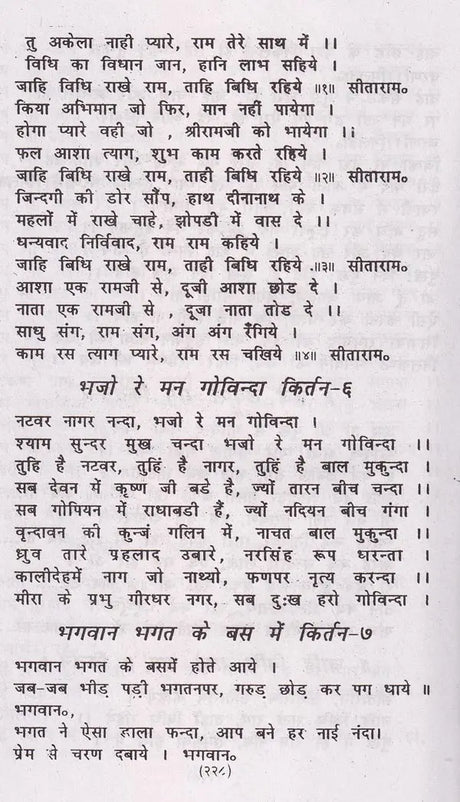 तु अकेला नाही प्यारे, राम तेरे साथ में ।।
विधि का विधान जान, हानि लाभ सहिये ।
जाहि विधि राखे राम, ताहि बिधि रहिये ॥१॥ सीताराम॰
किया अभिमान जो फिर, मान नहीं पायेगा ।
होगा प्यारे वही जो , श्रीरामजी को भायेगा ।।
फल आशा त्याग, शुभ काम करते रहिये ।
जाहि बिधि राखे राम, ताही बिधि रहिये ॥२॥ सीताराम॰
जिन्दगी की डोर सौंप, हाथ दीनानाथ के ।
महलों में राखे चाहे, झोपडी में वास दे ।।
धन्यवाद निर्विवाद, राम राम कहिये ।
जाहि बिधि राखे राम, ताही बिधि रहिये .॥३॥ सीताराम॰
आशा एक रामजी से, दूजी आशा छोड दे ।
नाता एक रामजी से , दूजा नाता तोड दे ।।
साधु संग, राम संग, अंग अंग रँगिये ।
काम रस त्याग प्यारे, राम रस चखिये ॥४॥ सीताराम॰
भजो रे मन गोविन्दा किर्तन-६
नटवर नागर नन्दा, भजो रे मन गोविन्दा ।
श्याम सुन्दर मुख चन्दा भजो रे मन गोविन्दा ।।
तुहि है नटवर, तुहिं है नागर, तुहिं है बाल मुकुन्दा ।
सब देवन में कृष्ण जी बडे है, ज्यों तारन बीच चन्दा ।।
सब गोपियन में राधाबडी हैं, ज्यों नदियन बीच गंगा ।
वृन्दावन की कुन्जं गलिन में, नाचत बाल मुकुन्दा ।।
ध्रुव तारे प्रहलाद उबारे, नरसिंह रूप धरन्ता ।
कालीदेहमें नाग जो नाथ्यो, फणपर नृत्य करन्दा ।।
मीरा के प्रभु गीरधर नगर, सब दुःख हरो गोविन्दा ।
भगवान भगत के बस में किर्तन-७
भगवान भगत के बसमें होते आये ।
जब-जब भीड़ पड़ी भगतनपर, गरुड़ छोड़ कर पग धाये ॥
भगवान॰,
भगत ने ऐसा डाला फन्दा, आप बने हर नाई नंदा।
प्रेम से चरण दबाये । भगवान॰
(२२८)